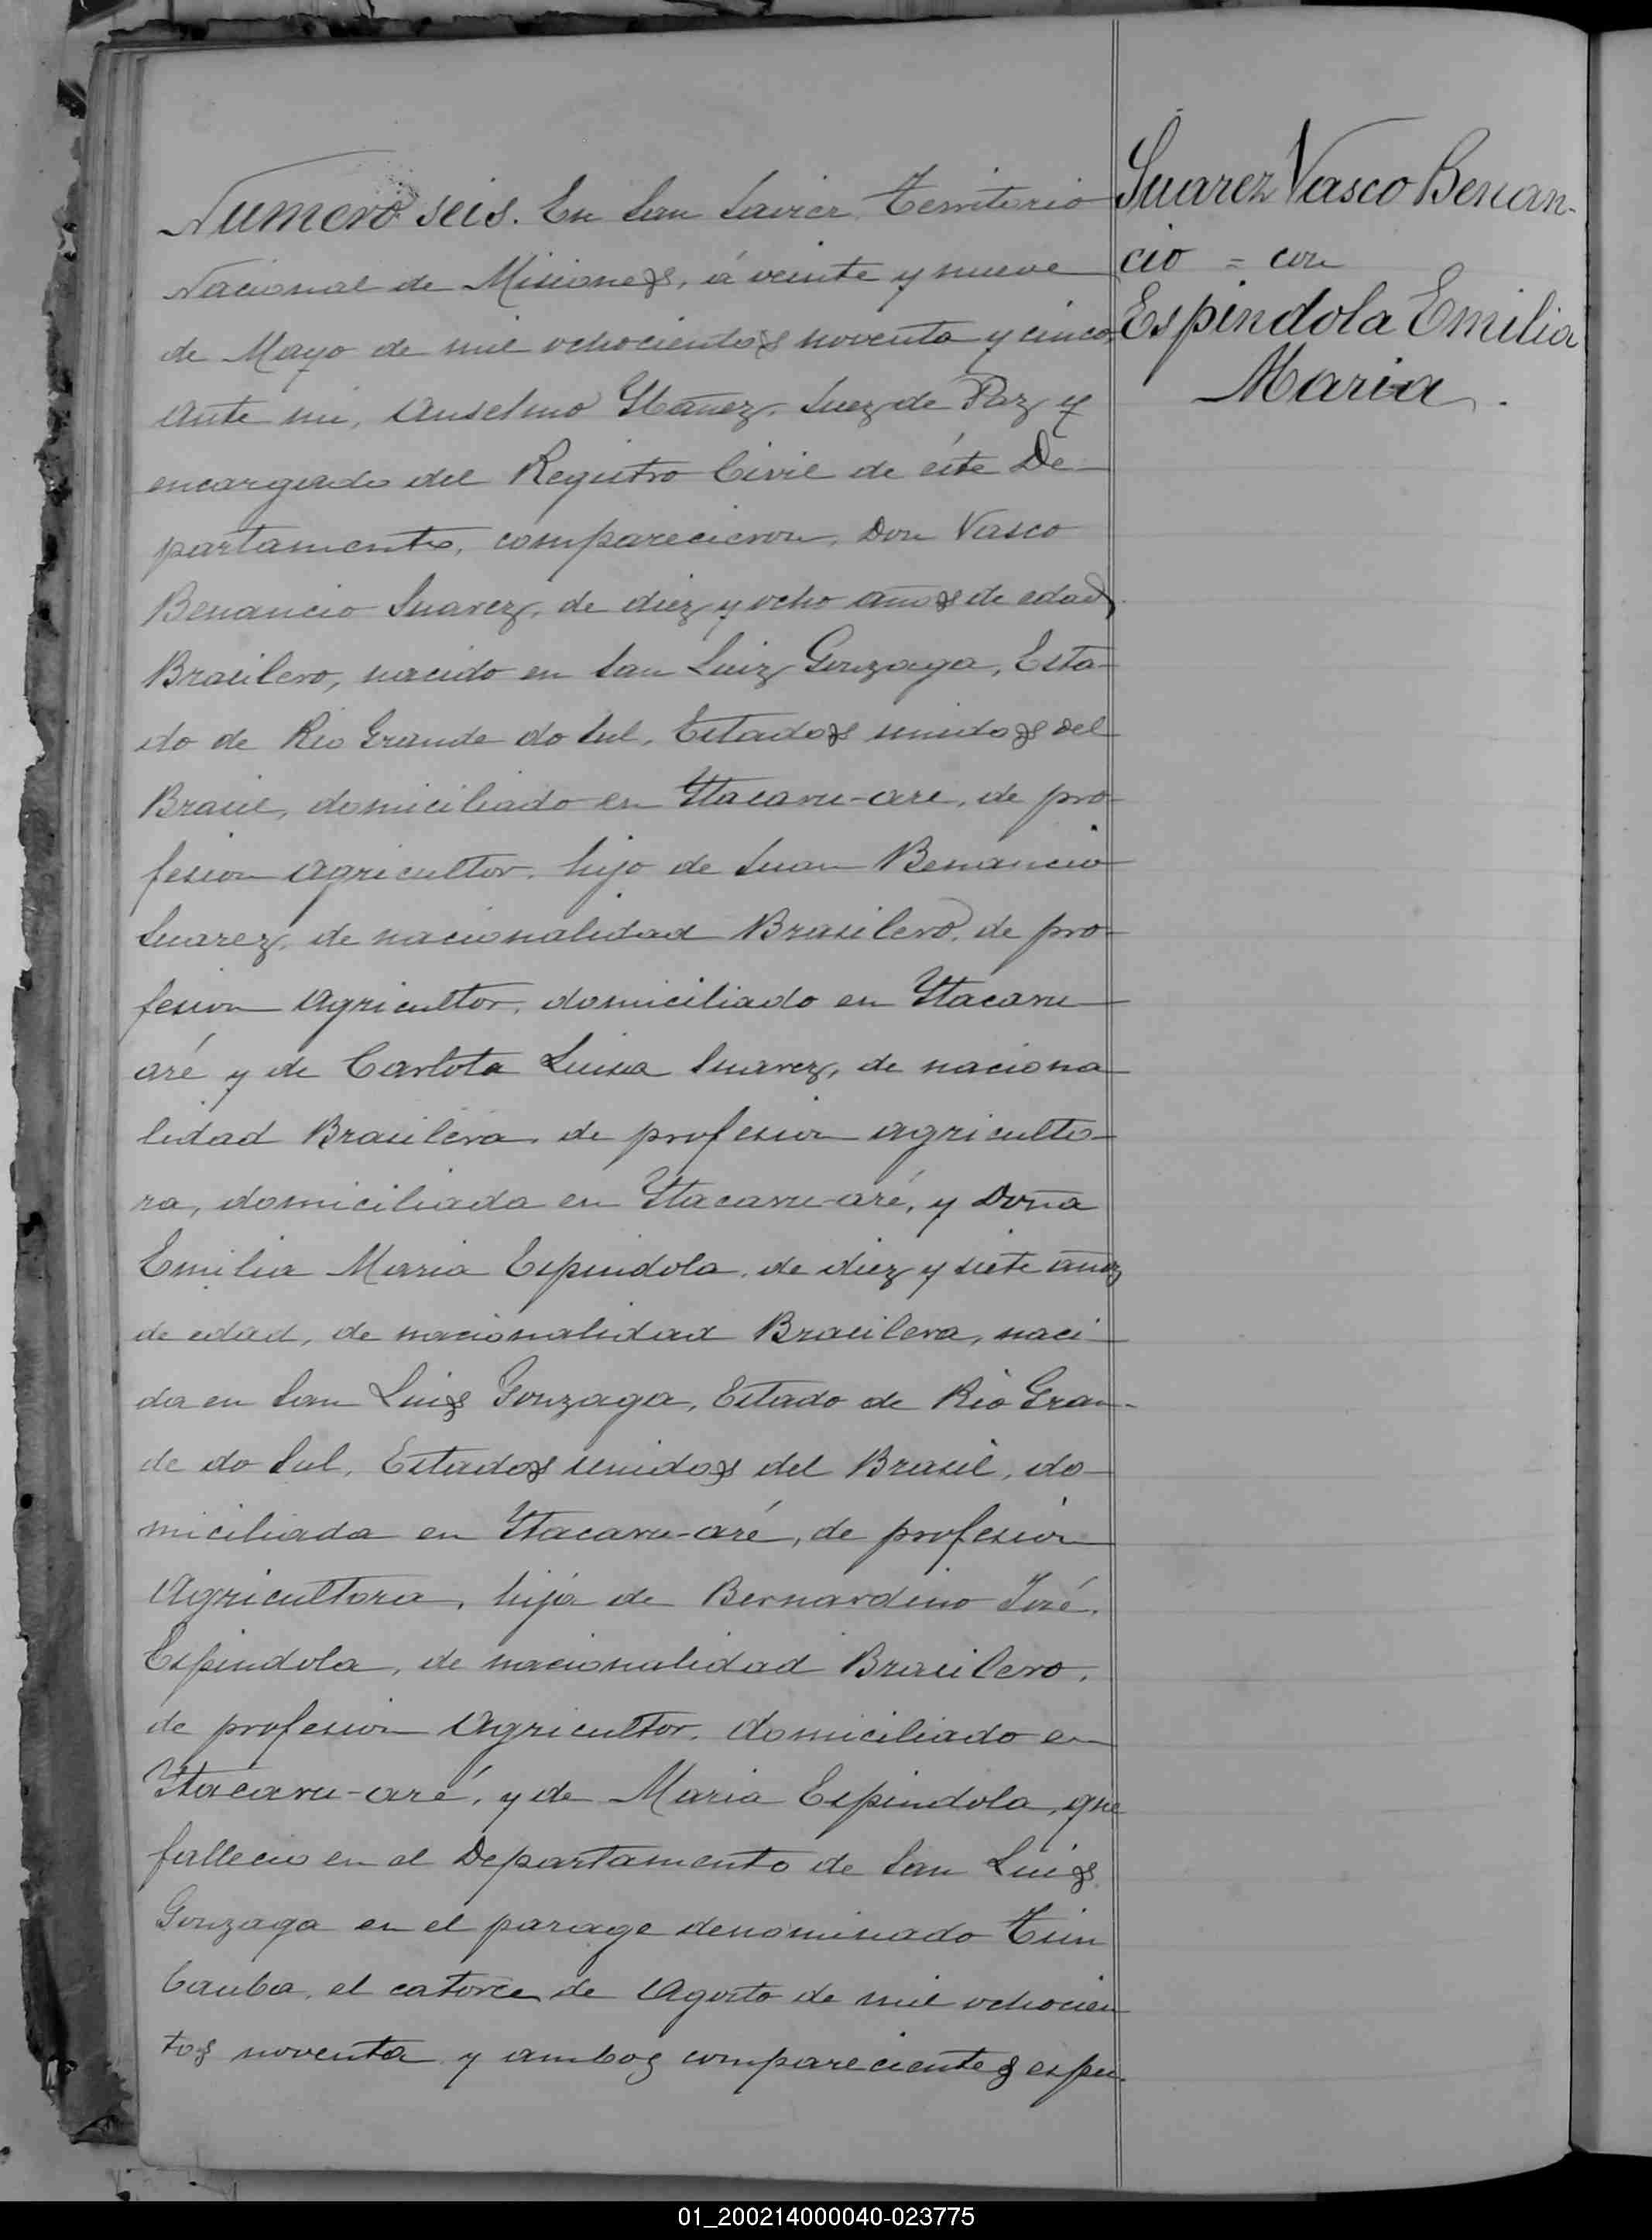 Numero seis. En San Javier, Territorio
Nacional de Misiones, á veinte y nueve
de Mayo de mil ochocientos noventa y cinco,
ante mi, Anselmo Ybañez, Juez de Paz y
encargado del Registro Civil de éste De-
partamento, comparecieron, Don Vasco
Benancio Suarez, de diez y ocho años de edad,
Brasilero, nacido en San Luiz Gonzaga, Esta-
do de Rio Grande do Sul, Estados unidos del
Brasil, domiciliado en Ytacaru-are, de pro-
fesion agricultor, hijo de Juan Benancio
Suarez, de nacionalidad Brasilero, de pro-
fesion Agricultor, domiciliado en Ytacaru-
aré y de Carlota Luisa Suarez, de naciona-
lidad Brasilera, de profesion agriculto-
ra, domiciliada en Ytacaru-aré, y Doña
Emilia Maria Espindola, de diez y siete años
de edad, de nacionalidad Brasilera, naci-
da en San Luis Gonzaga, Estado de Rio Gran-
de do Sul, Estados unidos del Brasil, do-
miciliada en Ytacaru-aré, de profesion
Agricultora, hija de Bernardino José
Espindola, de nacionalidad Brasilero,
de profesion Agricultor, domiciliado en
Ytacaru-aré, y de Maria Espindola, que
fallecio en el Departamento de San Luis
Gonzaga en el parage denominado Tim
bauba, el catorce de Agosto de mil ochocien
tos noventa y ambos comparecientes espu-
Suarez Vasco Benan-
cio = con
Espindola Emilia
Maria.
01_200214000040-023775